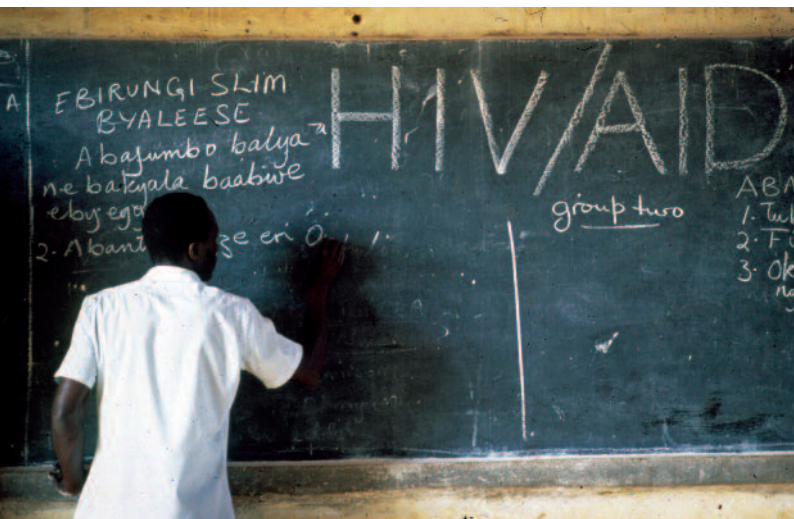 A
EBIRUNGI SLIM
BYALEESE
Abafumbo balya
ne bakyala baabwe
eby'egg
2. Abant ze eri O
HIV/AID
group two
ABA
1. Tul
2. Fi
3. Ok